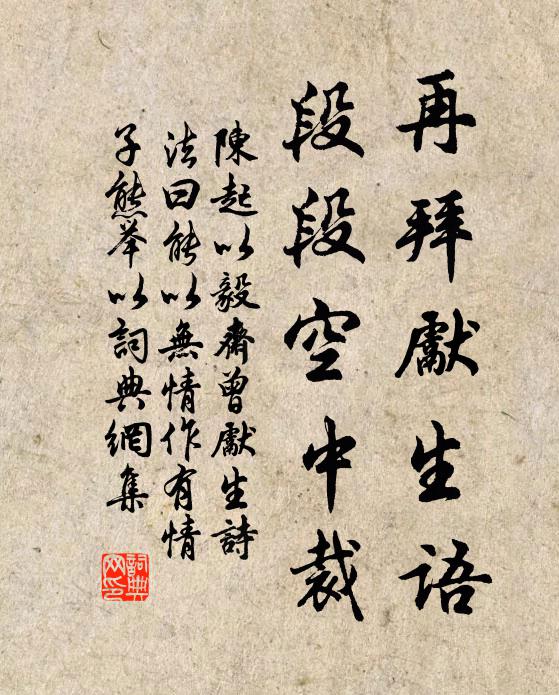 再拜獻生語
段段空中裁
陳起以毅齋曾獻生詩
法曰能以無情作有情
子熊舉以詞典網集
詞典網印